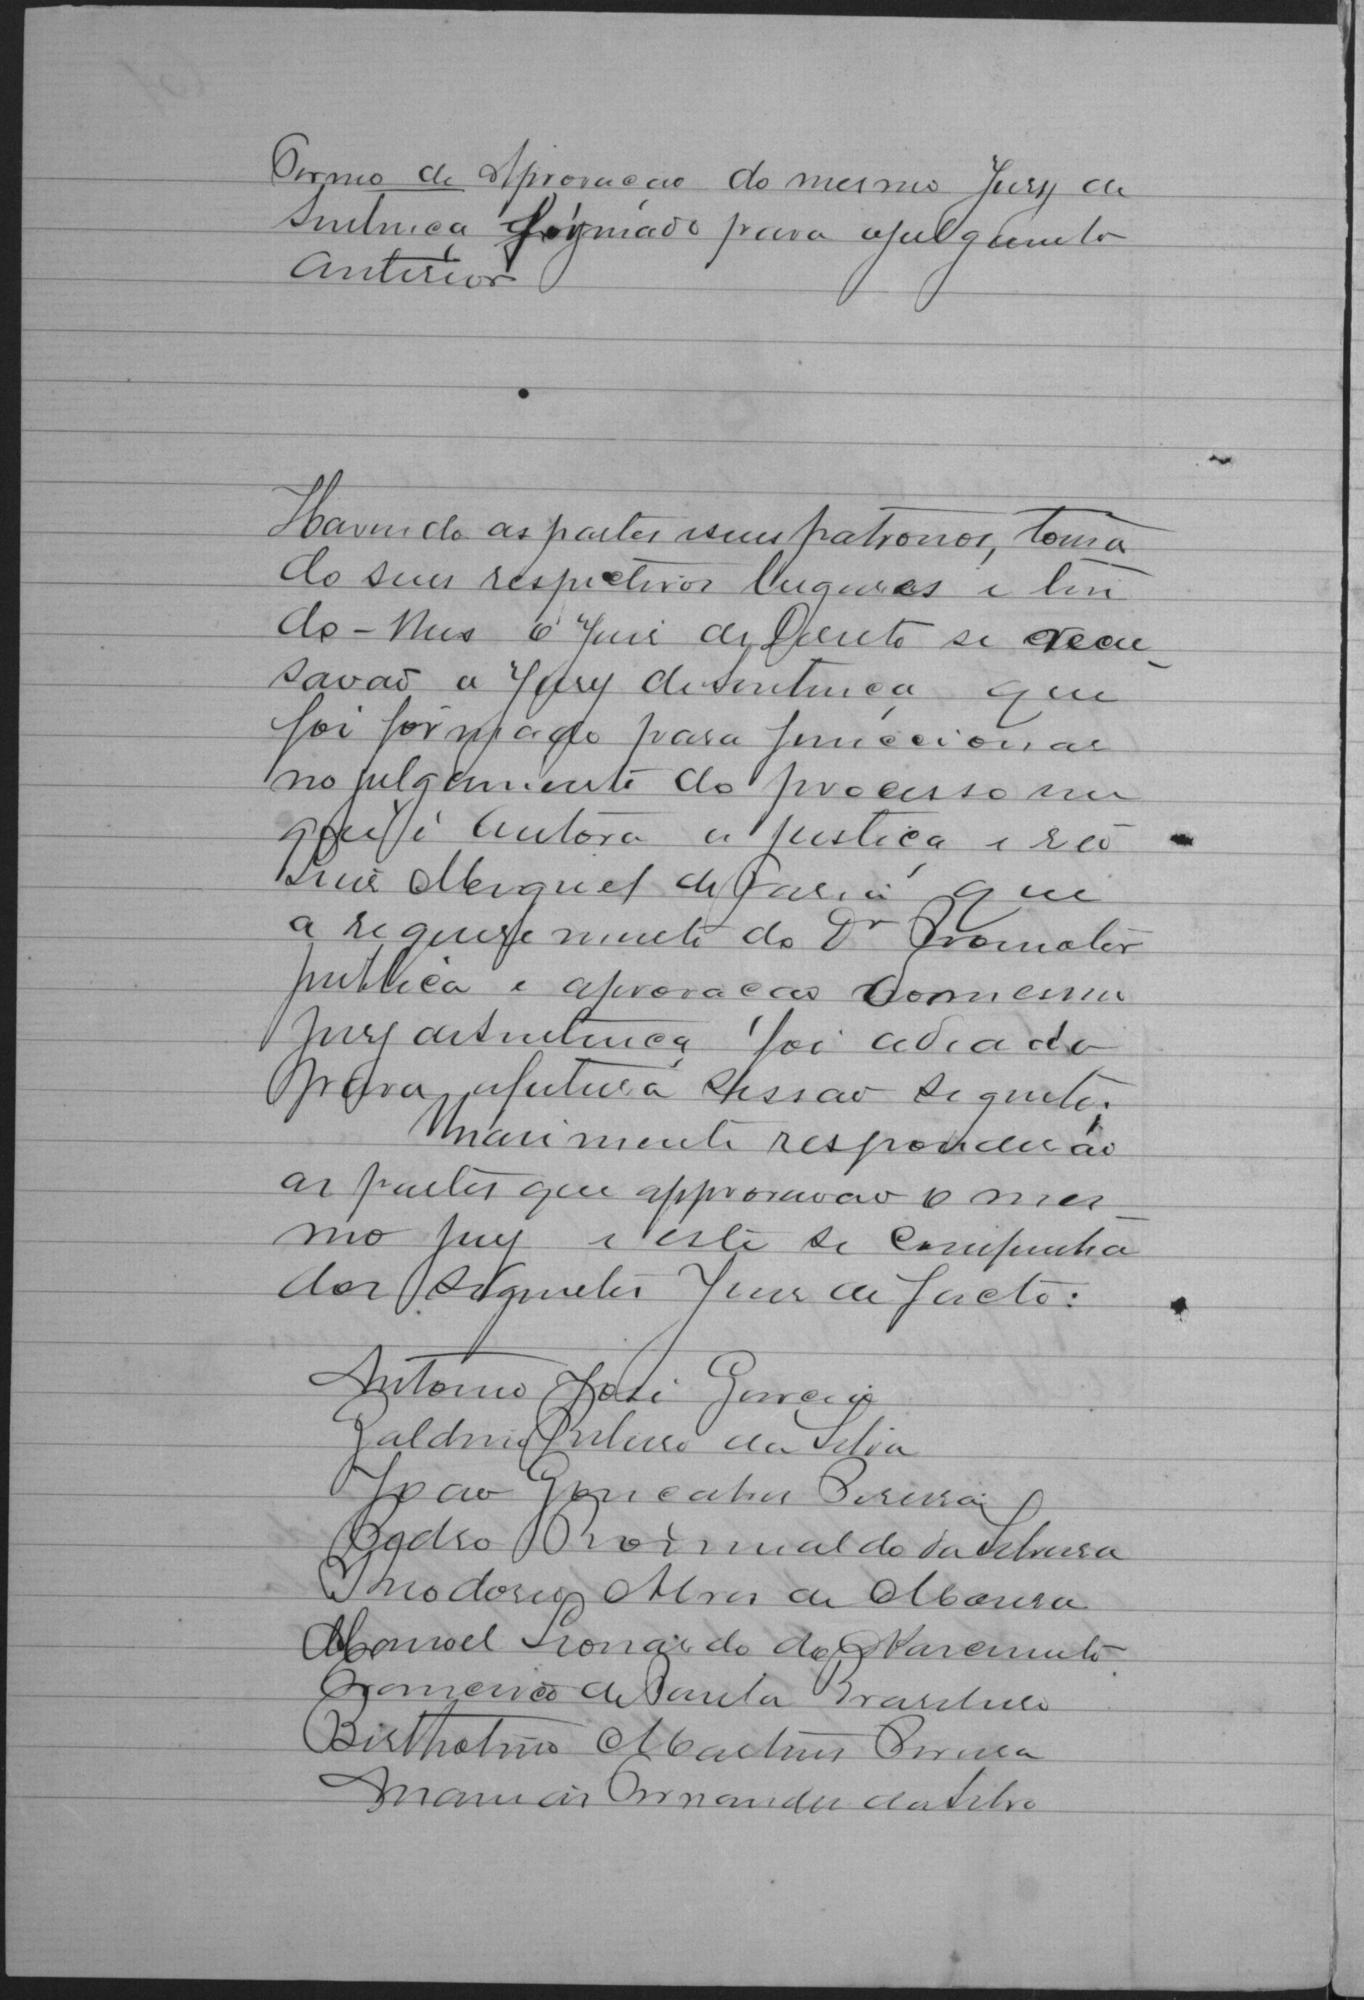 Termo de Aprovação do mesmo Jury de
Sentença formado para o julgamento
anterior
Havendo as partes e seus patronos, toma
do seus respectivos lugares e len
do-lhes o Juis de Direito se recu_
savaõ a Jury de Sentença que
foi formado para funccionar
no julgamento do processo em
que é Autora a justiça e reo
Luis Miguel de Faria que
a requerimento do Dr Promotor
publica e aprovacao do mesmo
Jury de Sentença foi adiado
para a futura sessao seguite.
Unanimente responderão
as partes que approvavao o mes_
mo jury e este se compunha
dos seguites Juis de facto:
Antonio José Garcia
Galdino Pulsero da Silva
Joao Goncalves Pereira
Pedro Romualdo da Silveira
Theodoro Alves de Moura
Manoel Leonardo do Nascimento
Francisco de Paula Brasileiro
Bertholino Martins Pereira
Ananias Fernandes da Silva